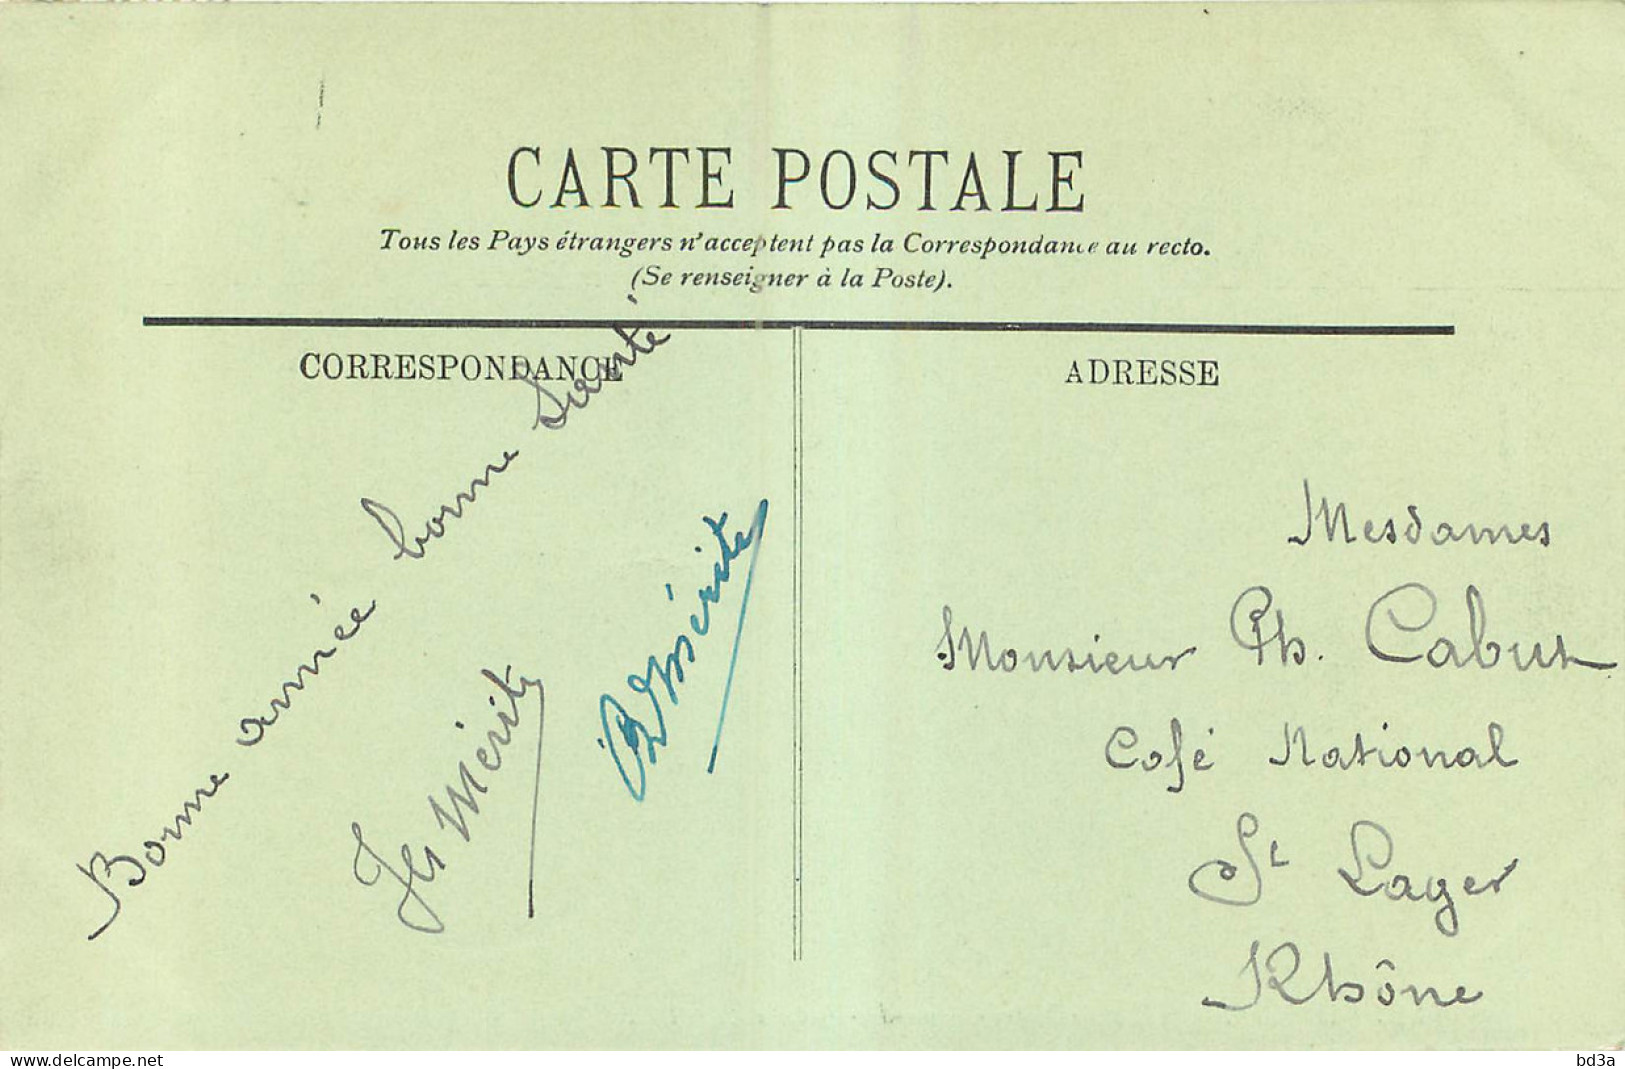 CARTE POSTALE
Tous les Pays étrangers n'acceptent pas la Correspondance au recto.
(Se renseigner à la Poste).
CORRESPONDANCE
Bonne année bonne Santé
Mérite
Mérite
ADRESSE
Mesdames
Monsieur Ph. Cabut
Café National
St Lager
Rhône
www.delcampe.net
bd3a